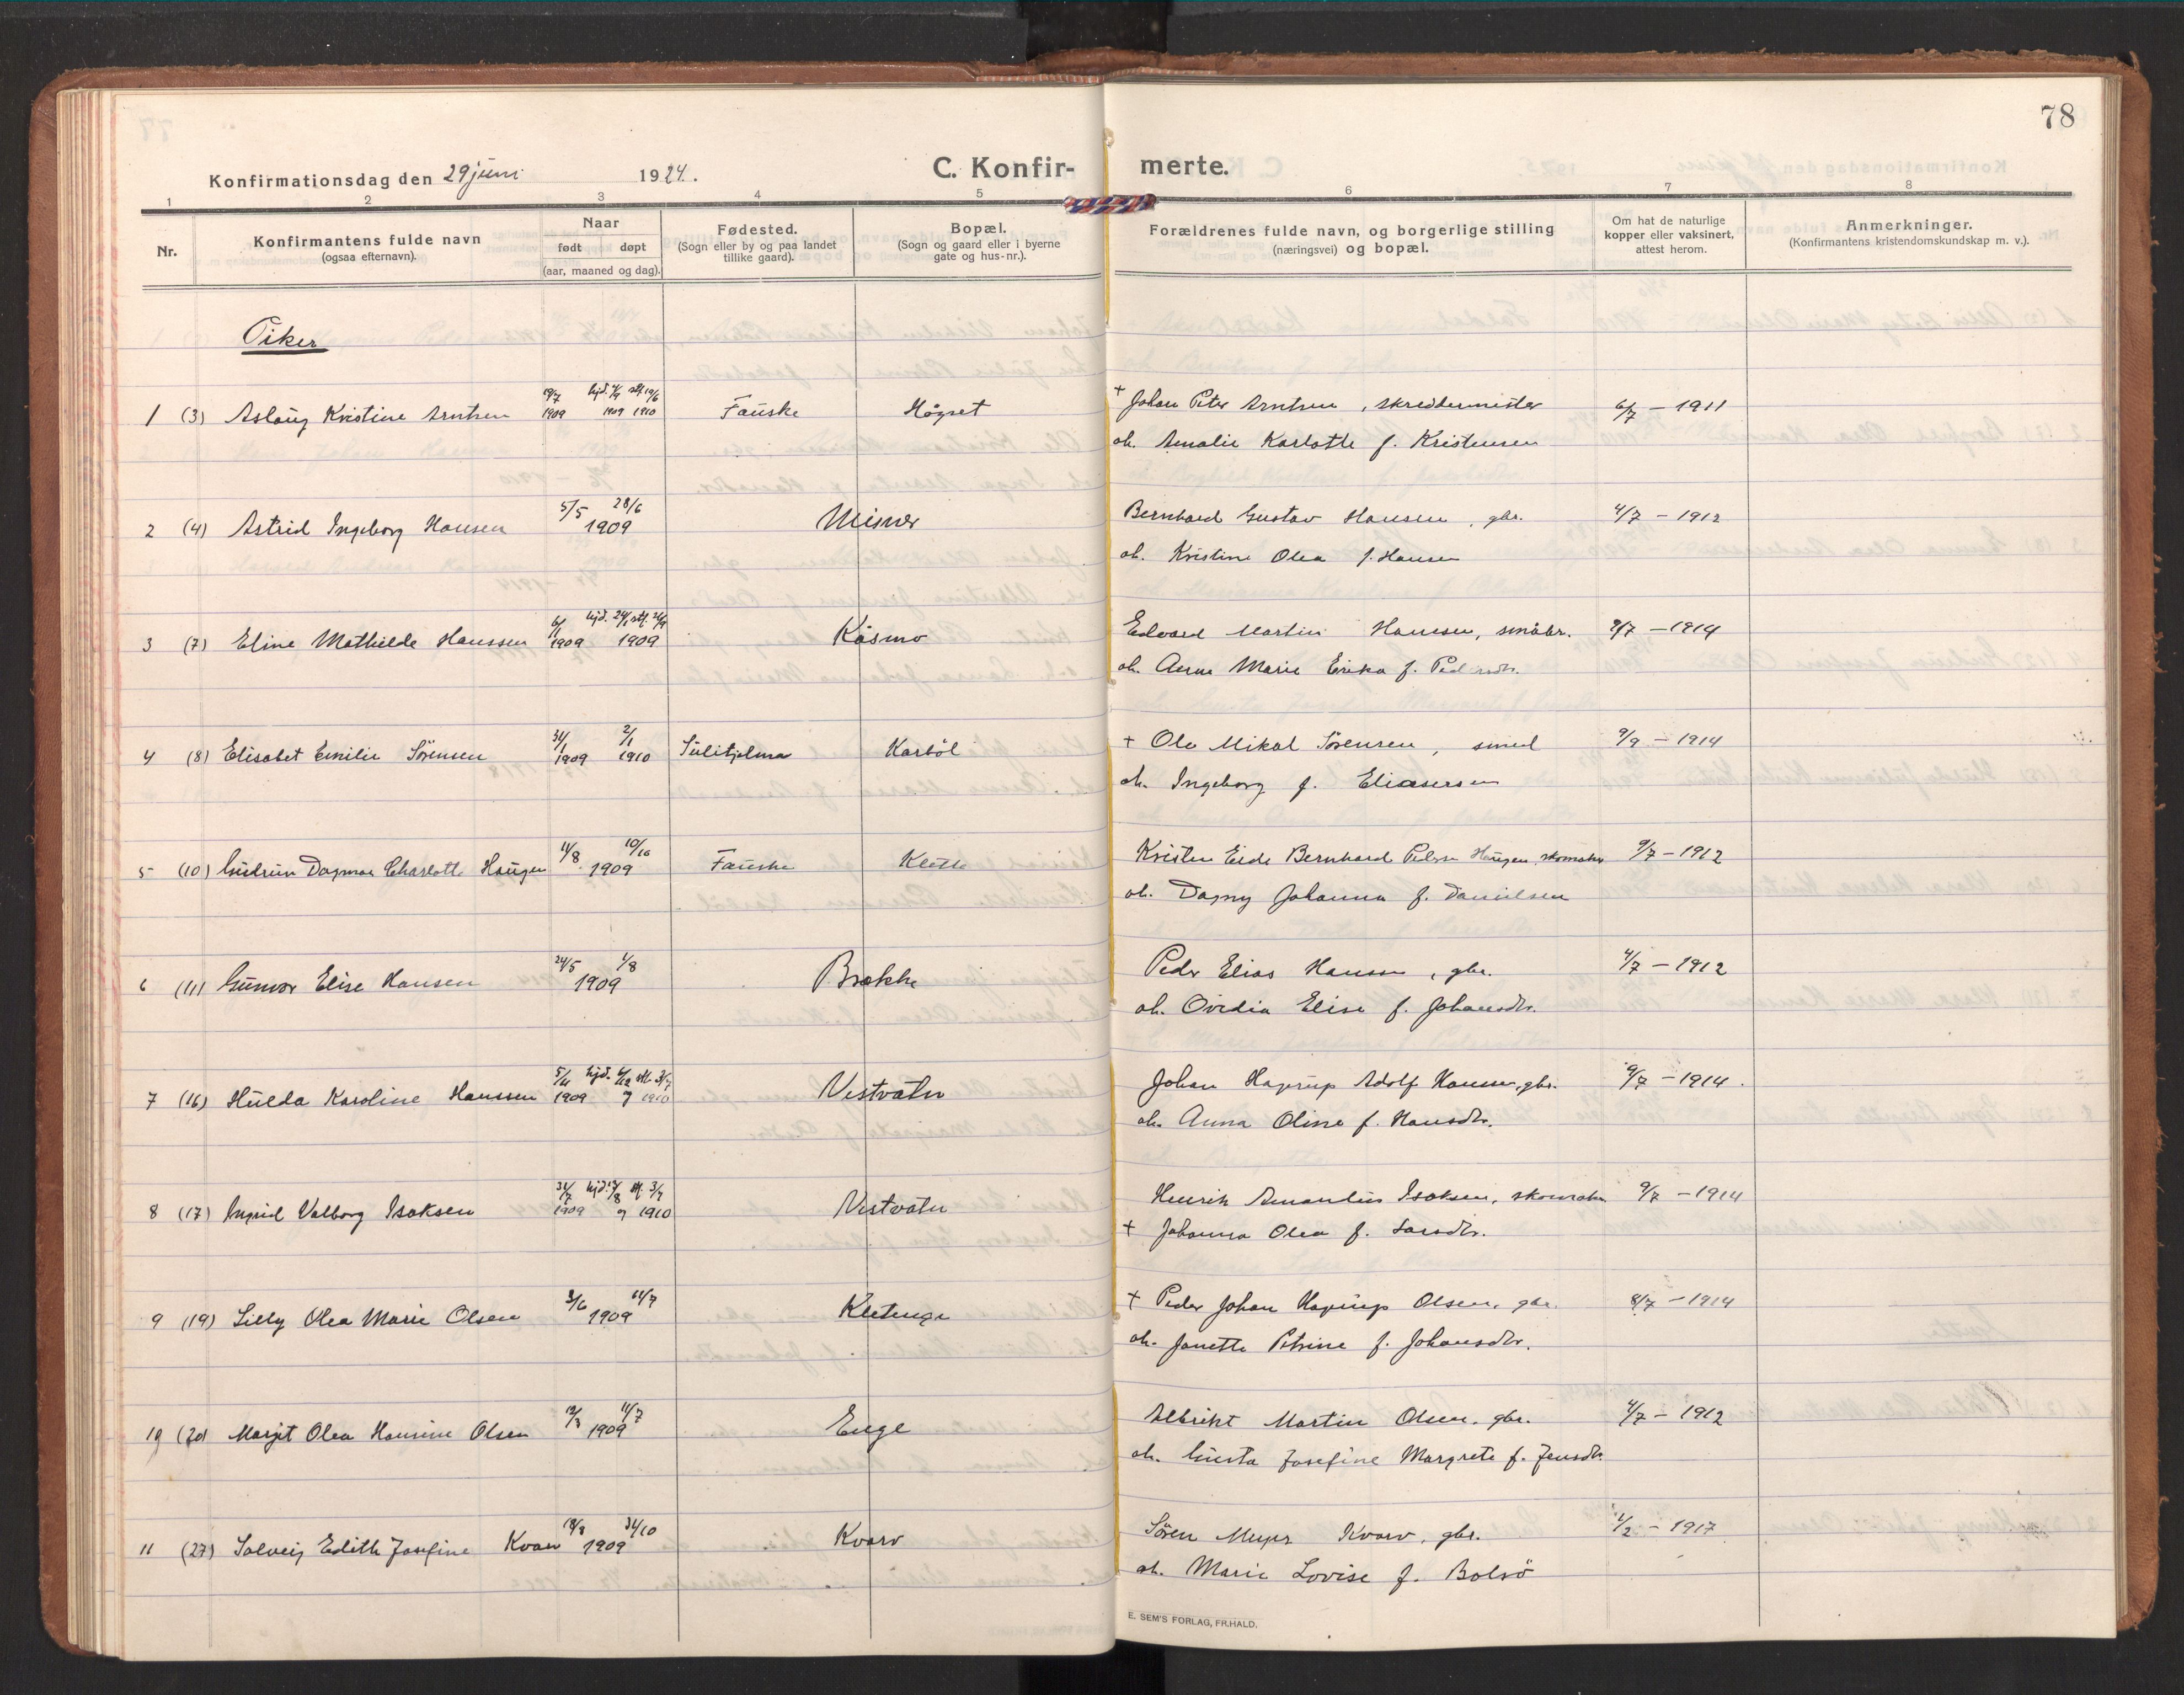 78
Konfirmationsdag den 29 juni 1924.
C. Konfirmerte.
1 2 3 4 5 6 7 8
Nr.
Konfirmantens fulde navn
(ogsaa efternavn).
Naar
født døpt
(aar, maaned og dag).
Fødested.
(Sogn eller by og paa landet
tillike gaard).
Bopæl.
(Sogn og gaard eller i byerne
gate og hus-nr.).
Forældrenes fulde navn, og borgerlige stilling
(næringsvei) og bopæl.
Om hat de naturlige
kopper eller vaksinert,
attest herom.
Anmerkninger.
(Konfirmantens kristendomskundskap m. v.).
Piker
19/7 hjd. stf. 19/6
1 (3) Aslaug Kristine Arntsen 1909 1909 1910 Fauske Høgset + Johan Peter Arntsen, skreddermester 6/7 - 1911
oh. Amalie Karlotte f. Kristensen
5/5 28/6
2 (4) Astrid Ingeborg Hansen 1909 Misvær Bernhard Gustav Hansen, gbr. 4/7 - 1912
oh. Kristine Olea f. Hansen
6/1 hjd. 24/1 stf.
3 (7) Eline Mathilde Hanssen 1909 1909 Kåsmo Edvard Martin Hanssen, småbr. 9/7 - 1914
oh. Anne Marie Erika f. Pedersdtr.
31/1 2/1
4 (8) Elisabet Emilie Sörensen 1909 1910 Sulitjelma Karbøl + Ole Mikal Sørensen, smed 9/9 - 1914
oh. Ingeborg f. Eliasersen
11/8 10/10
5 (10) Gudrun Dagmar Charlotte Haugen 1909 Fauske Kletta Kristen Eide Bernhard Pedersen Haugen, skomaker 9/7 - 1912
oh. Dagny Johanna f. Danielsen
24/5 1/8
6 (11) Gunvor Elise Hansen 1909 Brække Peder Elias Hansen, gbr. 4/7 - 1912
oh. Ovidia Elise f. Johansdtr.
5/11 hjd. 4/12 stf. 3/7
7 (16) Hulda Karoline Hanssen 1909 9 1910 Vestvatn Johan Hagerup Adolf Hanssen, gbr. 9/7 - 1914.
oh. Anna Oline f. Hansdtr.
31/7 hjd. stf. 3/7
8 (17) Ingrid Valborg Isaksen 1909 9 1910 Vestvatn Henrik Amandus Isaksen, skomaker 9/7 - 1914
+ Johanna Olea f. Larsdtr.
3/6 11/7
9 (19) Lilly Olea Marie Olsen 1909 Kletenga + Peder Johan Hagerup Olsen, gbr. 8/7 - 1914
oh. Janette Petrine f. Johansdtr.
12/3 11/7
10 (20) Margit Olea Hansine Olsen 1909 Enge Albrikt Martin Olsen, gbr. 4/7 - 1912
oh. Gusta Josefine Margrete f. Jensdtr.
18/8 31/10
11 (27) Solveig Edith Josefine Kvarv 1909 Kvarv Sören Meyer Kvarv, gbr. 1/2 - 1917
oh. Marie Lovise f. Bolsö
E. SEM'S FORLAG, FR.HALD.